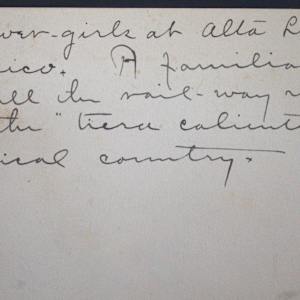 wer-girls at Alta L
ico. A familia
all the rail-way r
the "tiera calient
ical country.